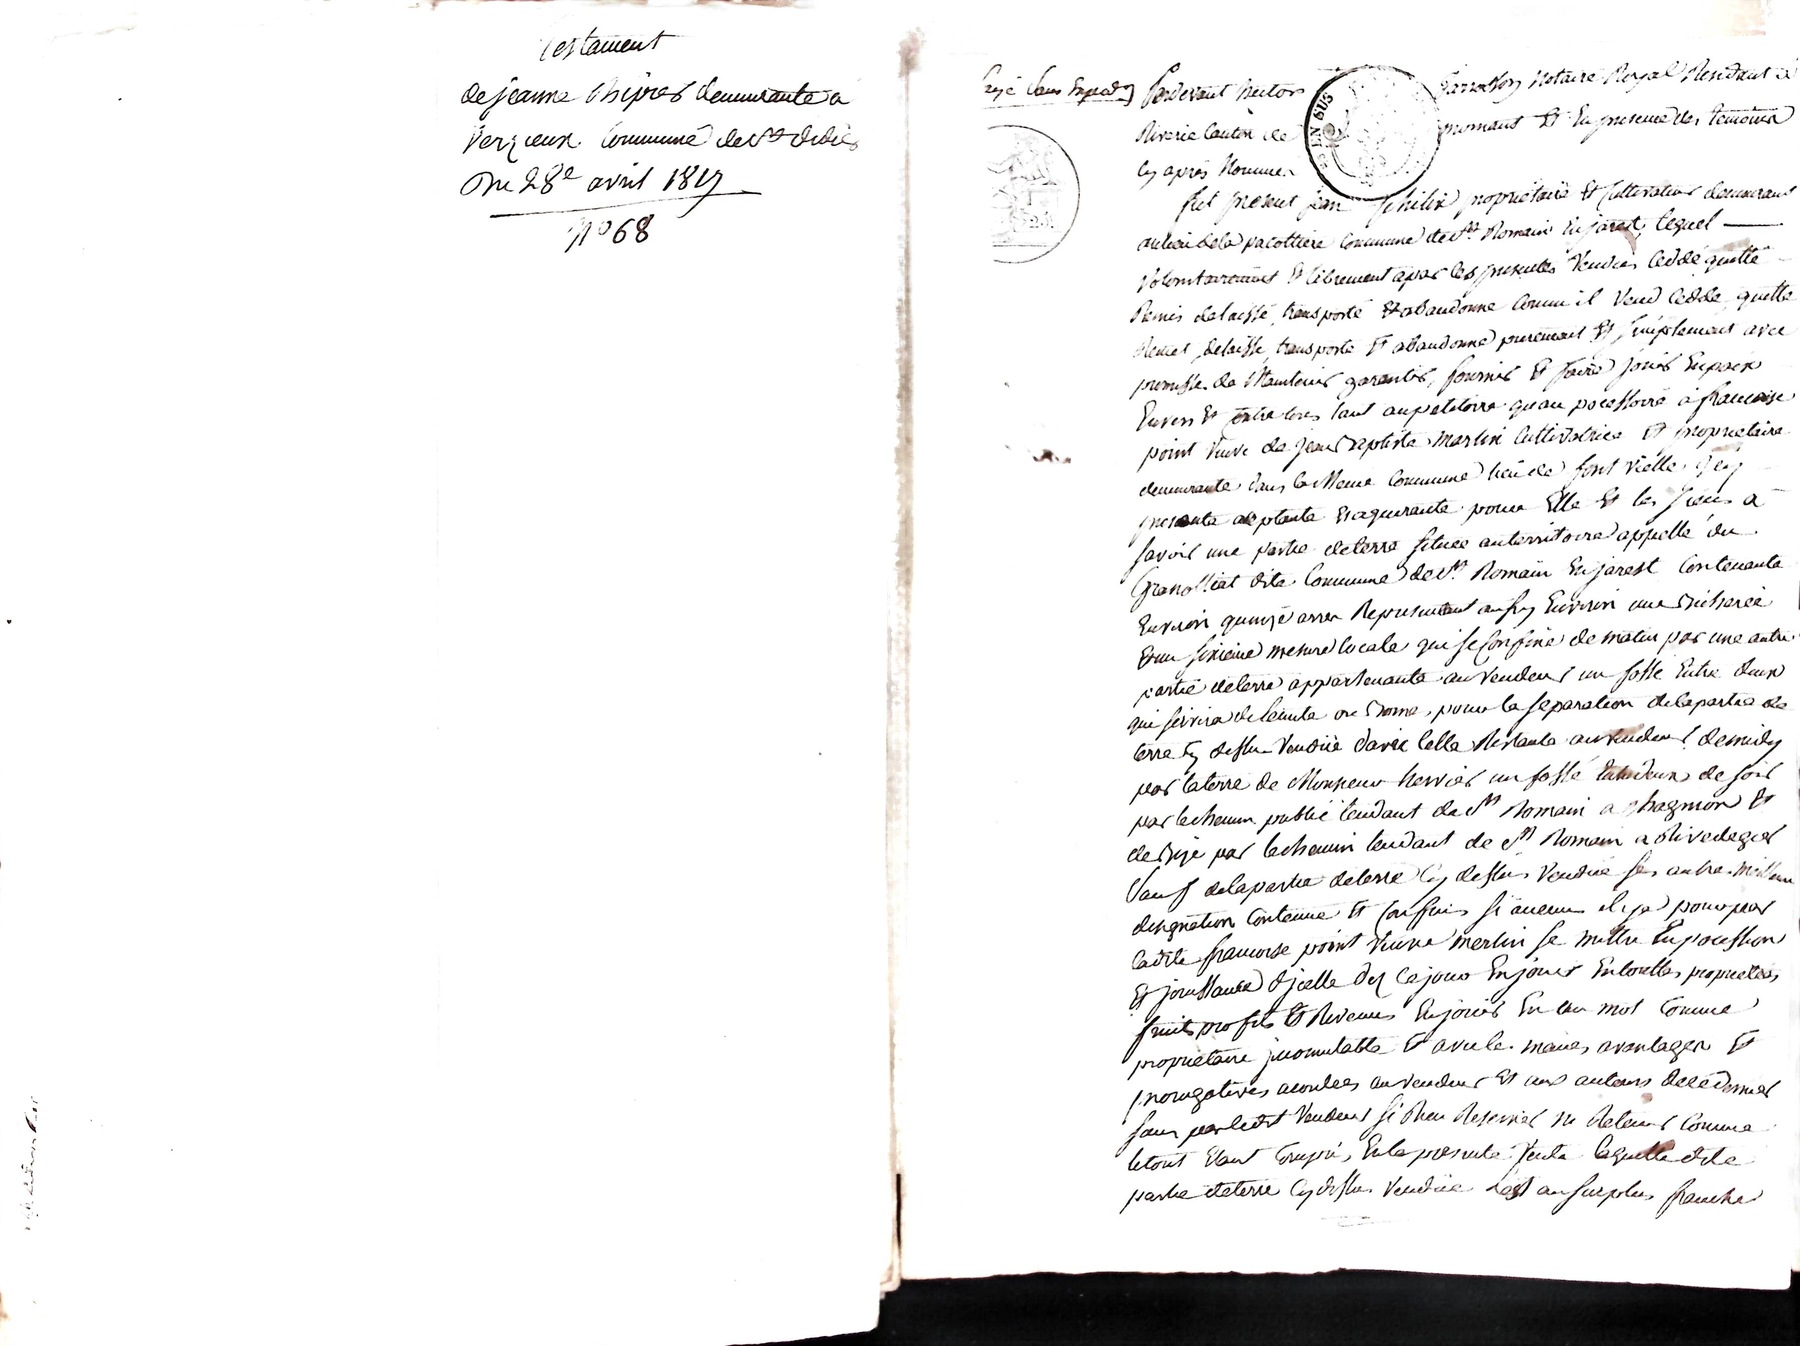 Testament
de jeanne Chipier demeurante a
Verzieux Commune de St didier
Du 28e avril 1817
N° 68
Pardevant hector
notaire Royal Residant a
Riverie Canton de
mornant Et En presence des temoins
Cy après Nommes
fut present jean proprietaire Et Cultivateur demeurant
au lieu de la pacottiere Commune de St Romain En jarest, lequel
Volontairement Et librement a par les presentes Vendu Ceddé quitté
Remis delaissé, transporté Et abandonné Comm il Vend Cedde, quitte
Remet, delaisse, transporte Et abandonne purement Et Simplement avec
promesse de Maintenir garantir, fournir Et faire jouir En paix
Envers Et Contre tous tant au petitoire qu'au pocessoire a francoise
point Veuve de jean Baptiste merlin Cultivatrice Et proprietaire
demeurante dans la Meme Commune lieu de font Vielle, Icy
presente aceptante Et aquerante pour Elle Et les Siens a
Savoir une partie de terre Située au territoire appellé du
dite Commune de St Romain En jarest Contenante
Environ quinze ares Representant ansy Environ une Bicherée
Et un Sixieme mesure locale qui se Confine de matin par une autre
partie de terre appartenante au Vendeur un fossé Entre deux
qui Servira de limite ou Borne, pour la Separation de la partie de
terre Cy dessus Vendue d'avec Celle Restante au Vendeur, de midy
par la terre de Monsieur hervier un fossé Entre deux, de soir
par le chemin public tendant de St Romain a Chagnon Et
de Bize par le chemin tendant de St Romain a Rivedegier
Sauf de la partie de terre Cy dessus Vendue Ses autre meilleur
designation Contenue Et Confins Si aucuns il y a pour par
ladite francoise point Veuve merlin Se mettre En pocession
Et jouissance d'icelle des Ce jour En jouir En toutes proprietés,
fruits profits Et Revenus En jouir En un mot Comme
proprietaire incomutable Et avec les memes avantages Et
prerogatives acordees au Vendeur Et aux auteurs de ce dernier
Sans par ledit Vendeur Si Rien Reserver ni Retenir Comme
le tout Etant Compris En la presente Vente laquelle dite
partie de terre Cy dessus Vendue Est au Surplus franche